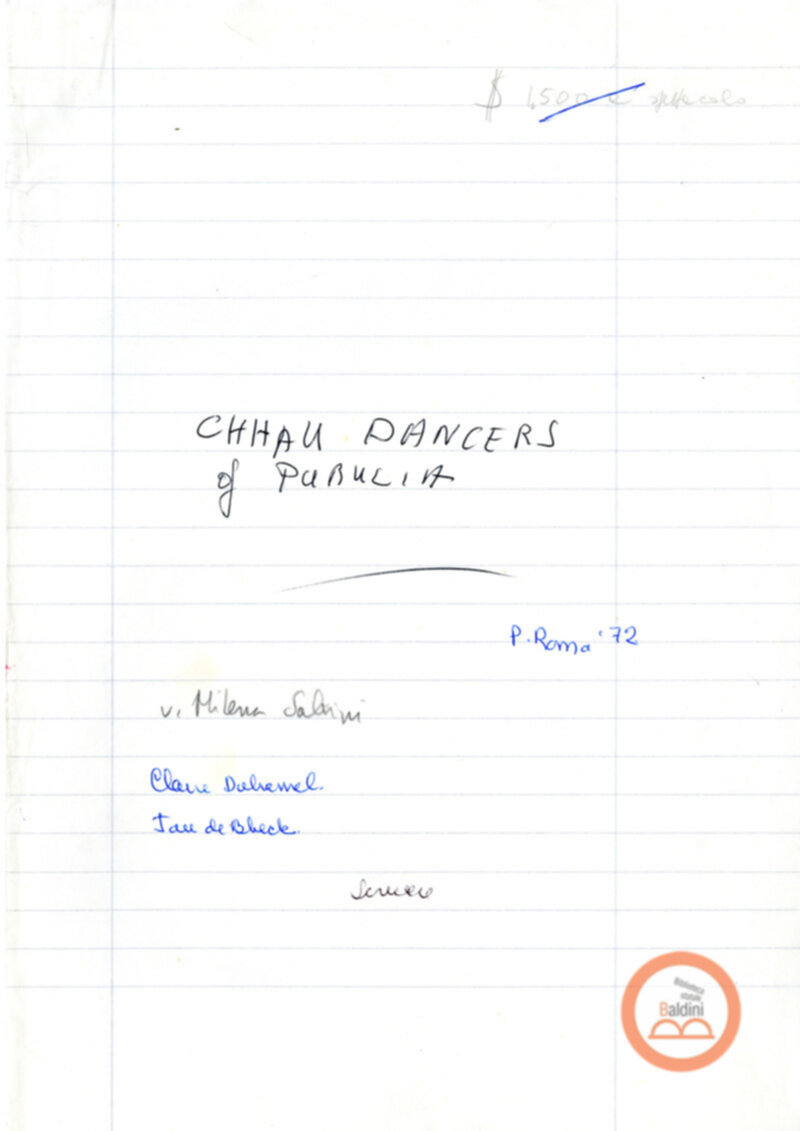 $ 1,500 a spettacolo
CHHAU DANCERS
of PURULIA
P. Roma '72
v. Milena Salvini
Claire Duhamel
Jan de Blieck
Scrivere
Biblioteca
statale
Baldini